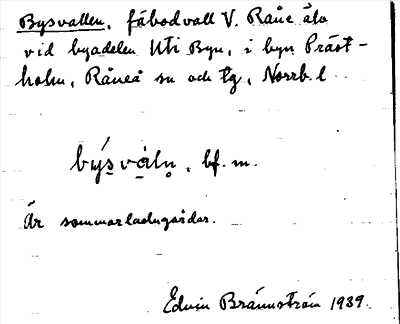 Bysvallen, fäbodvall V. Råne älv
vid byadelen Uti Byn, i byn Präst-
holm, Råneå sn och tg, Norrb. l
by̍s̱vàln̥, bf. m.
Är sommarladugårdar.
Edvin Brännström 1939.